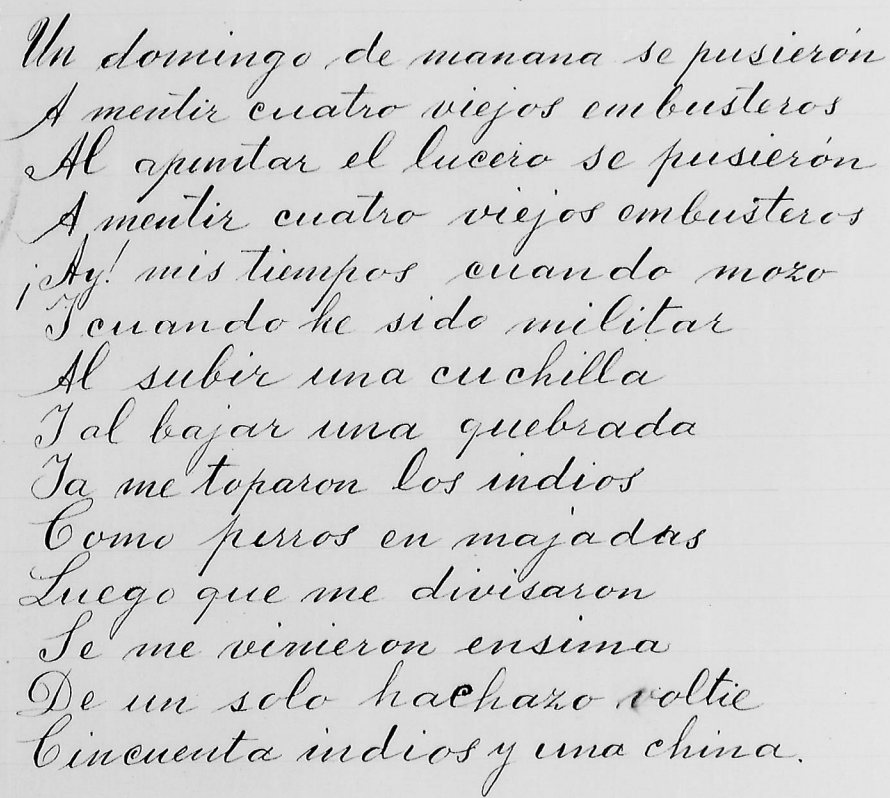 Un domingo de manana se pusierón
A mentir cuatro viejos embusteros
Al apuntar el lucero se pusierón
A mentir cuatro viejos embusteros
¡Ay! mis tiempos cuando mozo
I cuando he sido militar
Al subir una cuchilla
I al bajar una quebrada
Ia me toparon los indios
Como perros en majadas
Luego que me divisaron
Se me vinieron ensima
De un solo hachazo voltie
Cincuenta indios y una china.